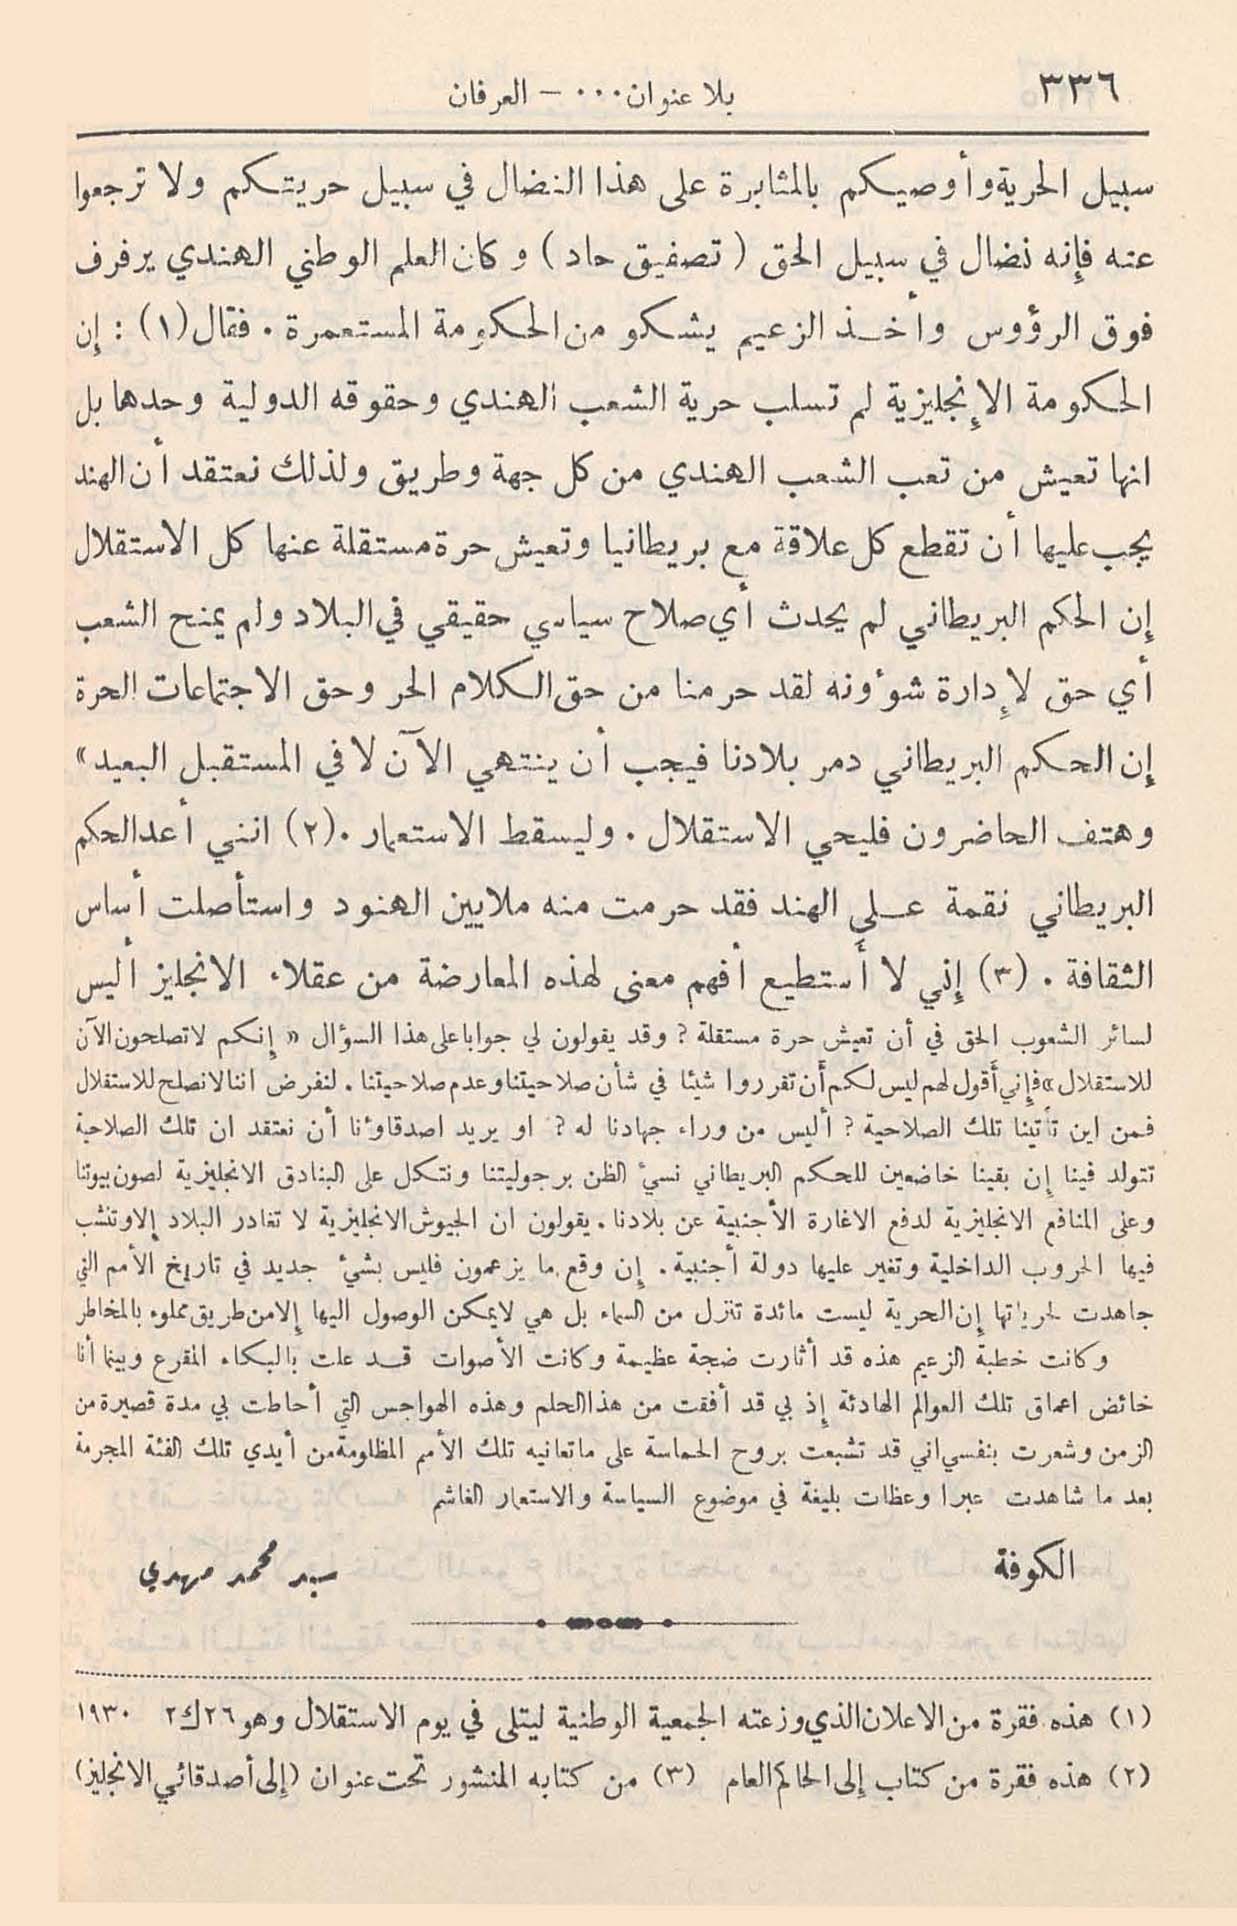 ٣٣٦
بلا عنوان... — العرفان
سبيل الحرية وأوصيكم بالمثابرة على هذا النضال في سبيل حريتكم ولا ترجعوا
عنه فإنه نضال في سبيل الحق ( تصفيق حاد ) وكان العلم الوطني الهندي يرفرف
فوق الرؤوس وأخذ الزعيم يشكو من الحكومة المستعمرة . فقال (١) : إن
الحكومة الإنجليزية لم تسلب حرية الشعب الهندي وحقوقه الدولية وحدها بل
انها تعيش من تعب الشعب الهندي من كل جهة وطريق ولذلك نعتقد أن الهند
يجب عليها أن تقطع كل علاقة مع بريطانيا وتعيش حرة مستقلة عنها كل الاستقلال
إن الحكم البريطاني لم يحدث أي صلاح سياسي حقيقي في البلاد ولم يمنح الشعب
أي حق لإدارة شوءونه لقد حرمنا من حق الكلام الحر وحق الاجتماعات الحرة
إن الحكم البريطاني دمر بلادنا فيجب أن ينتهي الآن لا في المستقبل البعيد »
وهتف الحاضرون فليحي الاستقلال . وليسقط الاستعمار . (٢) انني أعد الحكم
البريطاني نقمة على الهند فقد حرمت منه ملايين الهنود واستأصلت أساس
الثقافة . (٣) إني لا أستطيع أفهم معنى لهذه المعارضة من عقلاء الانجليز أليس
لسائر الشعوب الحق في أن تعيش حرة مستقلة ? وقد يقولون لي جوابا على هذا السؤال « إنكم لا تصلحون الآن
للاستقلال » فإني أقول لهم ليس لكم أن تقرروا شيئا في شأن صلاحيتنا وعدم صلاحيتنا . لنفرض اننا لا نصلح للاستقلال
فمن اين تأتينا تلك الصلاحية ? أليس من وراء جهادنا له ? او يريد اصدقاوءنا أن نعتقد ان تلك الصلاحية
تتولد فينا إن بقينا خاضعين للحكم البريطاني نسيء الظن برجوليتنا ونتكل على البنادق الانجليزية لصون بيوتنا
وعلى المنافع الانجليزية لدفع الاغارة الأجنبية عن بلادنا . يقولون ان الجيوش الانجليزية لا تغادر البلاد إلا وتنشب
فيها الحروب الداخلية وتغير عليها دولة أجنبية . إن وقع ما يزعمون فليس بشيء جديد في تاريخ الأمم التي
جاهدت لحرياتها إن الحرية ليست مائدة تنزل من السماء بل هي لا يمكن الوصول اليها إلا من طريق مملوء بالمخاطر
وكانت خطبة الزعيم هذه قد أثارت ضجة عظيمة وكانت الأصوات قد علت بالبكاء المقرع وبينما أنا
خائض اعماق تلك العوالم الهادئة إذ بي قد أفقت من هذا الحلم وهذه الهواجس التي أحاطت بي مدة قصيرة من
الزمن وشعرت بنفسي اني قد تشبعت بروح الحماسة على ما تعانيه تلك الأمم المظلومة من أيدي تلك الفئة المجرمة
بعد ما شاهدت عبرا وعظات بليغة في موضوع السياسة والاستعمار الغاشم
الكوفة سيد محمد مهدي
(١) هذه فقرة من الاعلان الذي وزعته الجمعية الوطنية ليتلى في يوم الاستقلال وهو ٢٦ ك٢ ١٩٣٠
(٢) هذه فقرة من كتاب إلى الحاكم العام (٣) من كتابه المنشور تحت عنوان (إلى أصدقائي الانجليز)